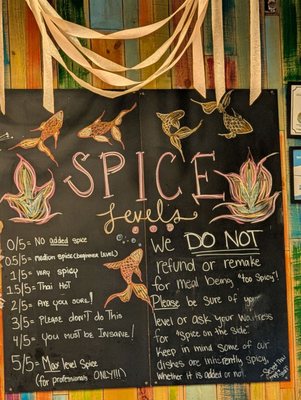 SPICE
Levels
0/5= NO added spice
0.5/5= medium spice (beginner level)
1/5= very spicy
1.5/5= Thai Hot
2/5= Are you sure!
3/5= PLEASE DON'T DO THIS
4/5= YOU MUST BE INSANE!
5/5= Max level Spice
(for professionals ONLY!!!!)
We DO NOT
refund or remake
for meal being "too spicy"!
Please be sure of your
level or ask your Waitress
for "spice on the side".
Keep in mind some of our
dishes are inherently spicy,
whether it is added or not.